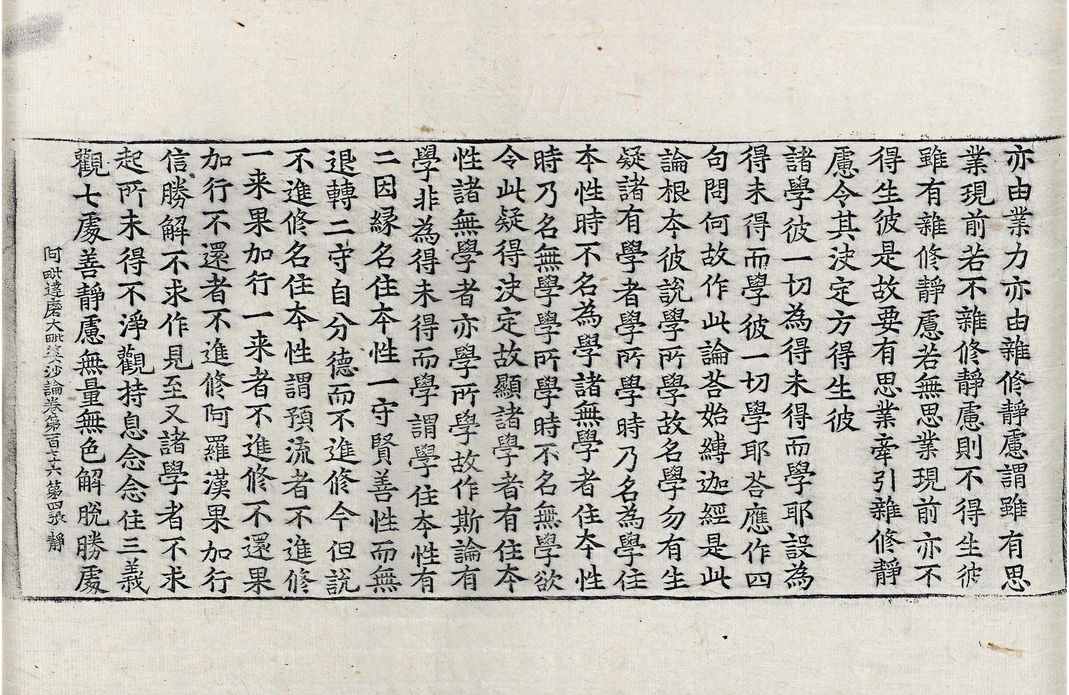 亦由業力亦由雜修静慮謂雖有思
業現前若不雜修静慮則不得生彼
雖有雜修静慮若無思業現前亦不
得生彼是故要有思業牽引雜修静
慮令其决定方得生彼
諸學彼一切為得未得而學耶設為
得未得而學彼一切學耶荅應作四
句問何故作此論荅始縛迦經是此
論根夲彼說學所學故名學勿有生
疑諸有學者學所學時乃名為學住
夲性時不名為學諸無學者住夲性
時乃名無學學所學時不名無學欲
令此疑得决定故顯諸學者有住夲
性諸無學者亦學所學故作斯論有
學非為得未得而學謂學住夲性有
二因縁名住夲性一守賢善性而無
退轉二守自分德而不進修今但說
不進修名住夲性謂預流者不進修
一来果加行一来者不進修不還果
加行不還者不進修阿羅漢果加行
信勝解不求作見至又諸學者不求
起所未得不淨觀持息念念住三義
觀七處善静慮無量無色解脫勝處
阿毗達磨大毗婆沙論卷第百七十六 第四張 静